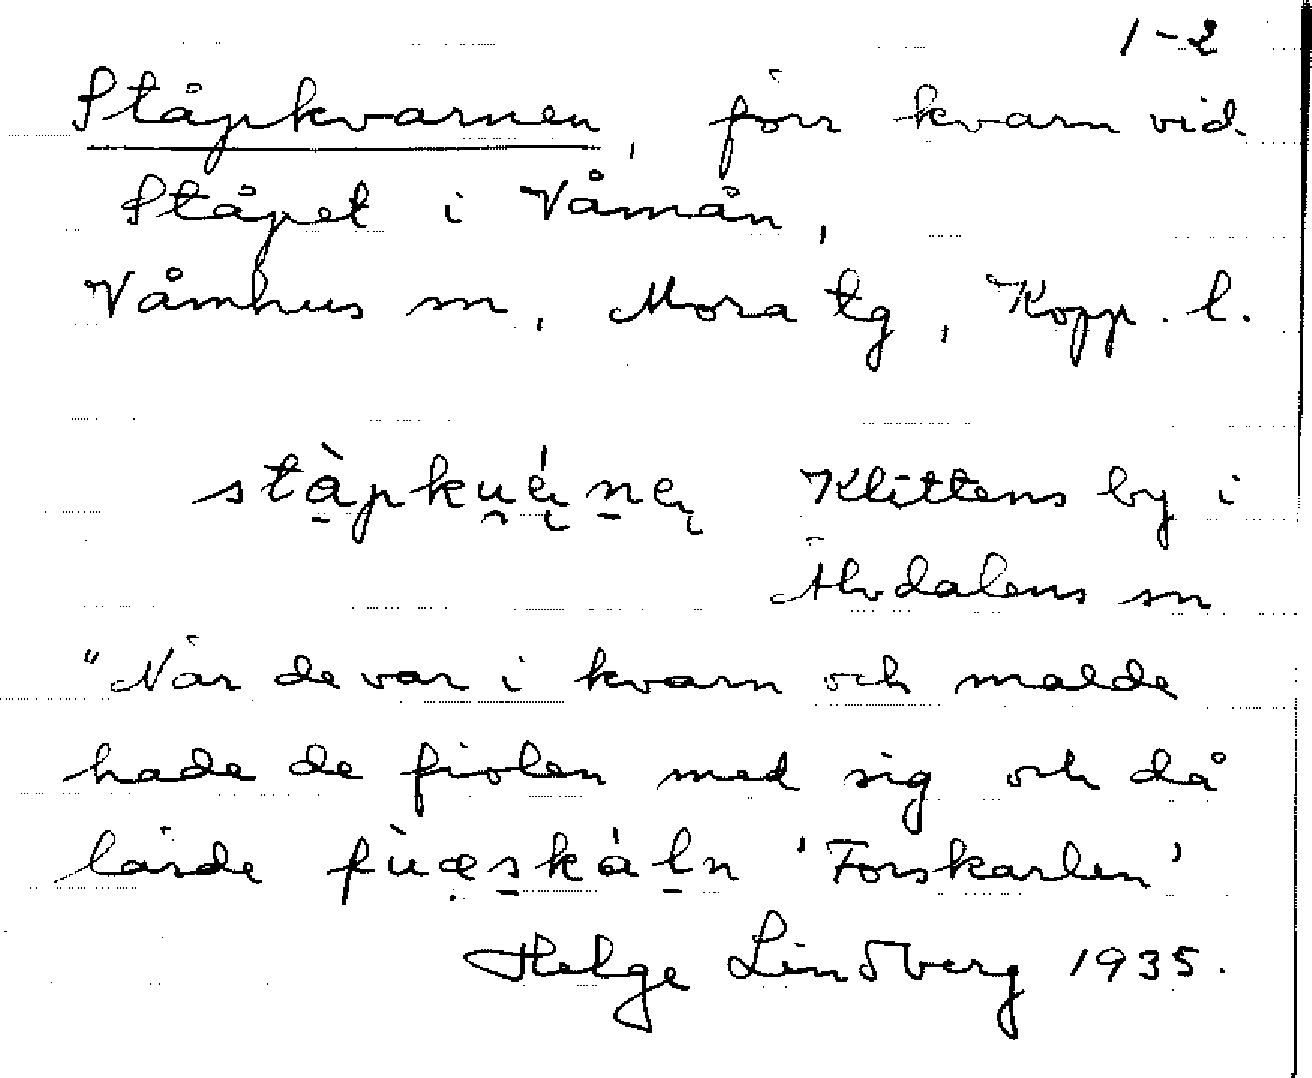 1-2
Ståpkvarnen, förr kvarn vid
Ståpet i Våmån,
Våmhus sn, Mora tg, Kopp. l.
Klittens by i
Älvdalens sn
"När de var i kvarn och malde
hade de fiolen med sig och då
lärde fùœskàln 'Forskarlen'
Helge Lindberg 1935.